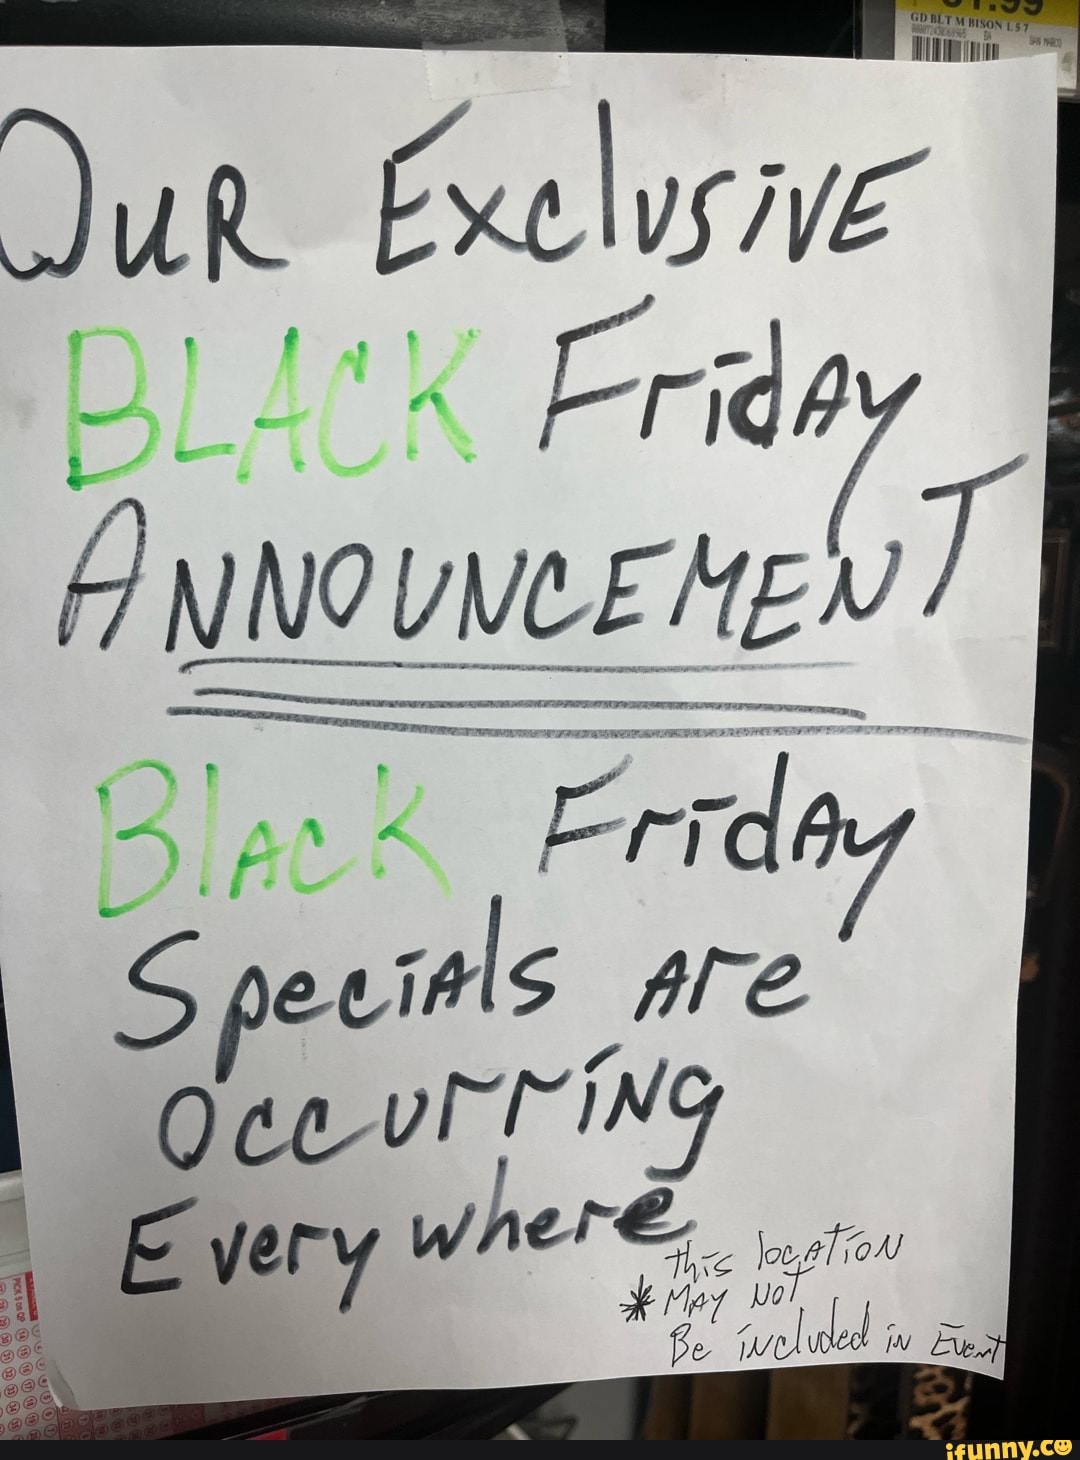 GD BLT M BISON L 57
OUR ExclusivE
BLACK FridAy
ANNOUNCEMENT
BlAcK FridAy
SpeciAls Are
OccurriNg
Everywhere
* this locATioN
MAy NOT
Be iNcluded iN EveNT
ifunny.co